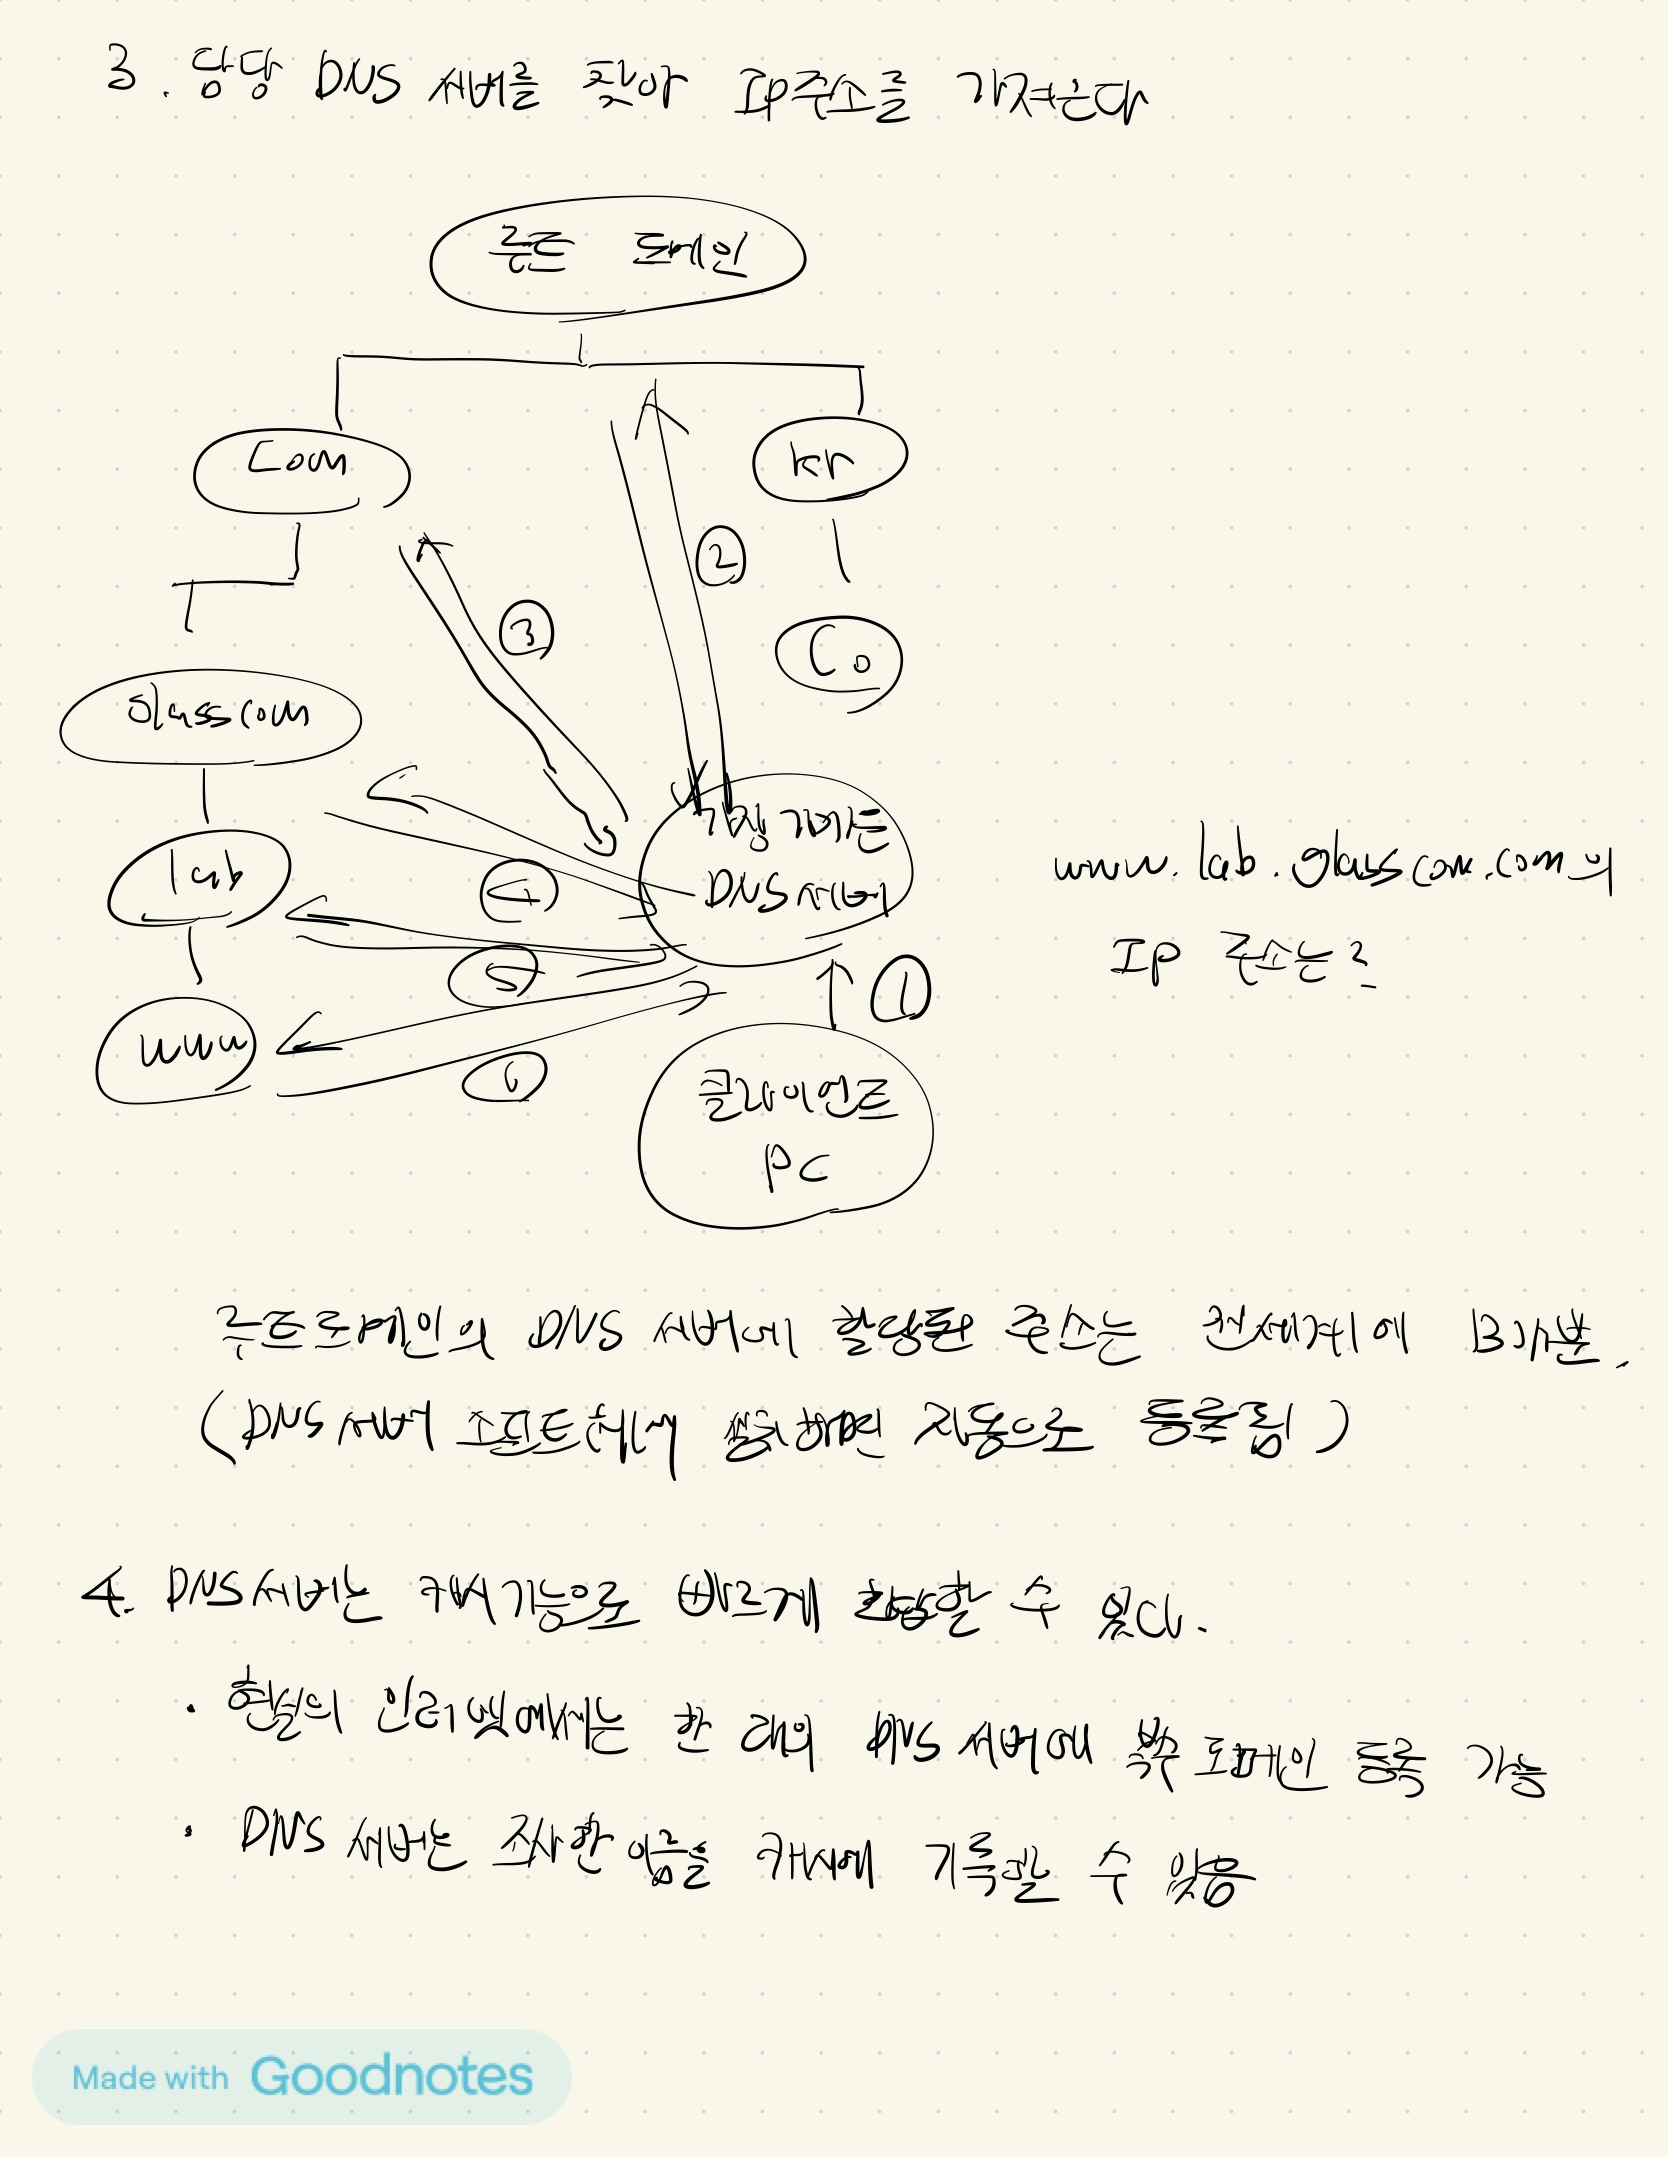 3. 담당 DNS 서버를 찾아 IP주소를 가져온다
루트 도메인
Com
kr
②
③
Co
glasscom
가장 가까운
DNS 서버
lab
④
www.lab.glasscom.com의
IP 주소는?
⑤
①
www
⑥
클라이언트
PC
루트도메인의 DNS 서버에 할당된 주소는 전세계에 13개뿐.
(DNS 서버 소프트웨어 설치하면 자동으로 등록됨)
4. DNS서버는 캐시기능으로 빠르게 회답할 수 있다.
· 현실의 인터넷에서는 한 대의 DNS 서버에 복수 도메인 등록 가능
· DNS 서버는 조사한 이름을 캐시에 기록할 수 있음
Made with Goodnotes